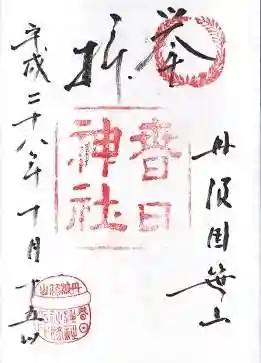 奉拝
丹波国笹山
春日
神社
平成二十八年十月十五日